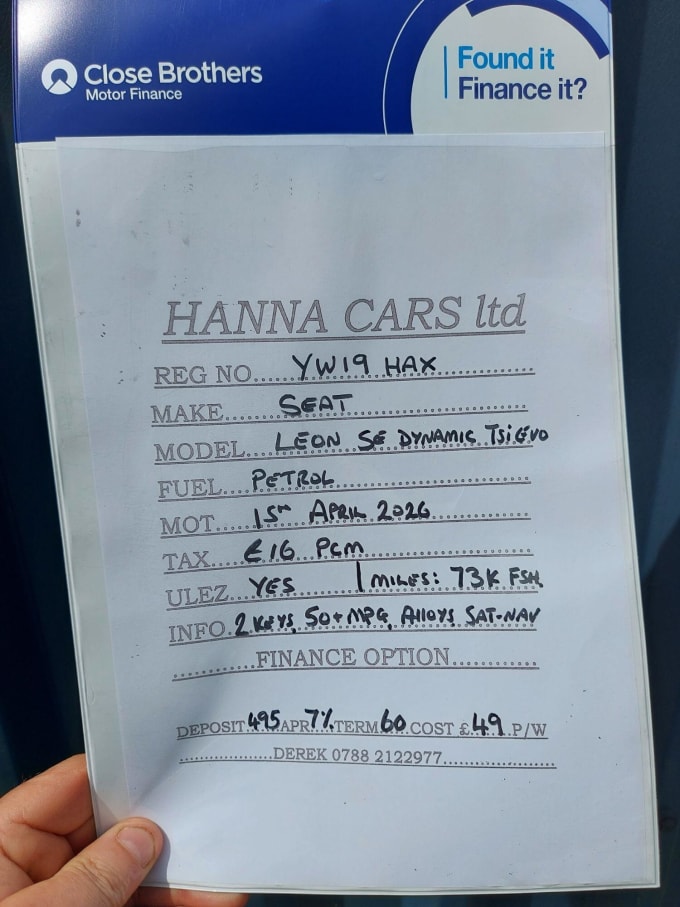 Close Brothers
Motor Finance
Found it
Finance it?
HANNA CARS ltd
REG NO.....YW19 HAX..............
MAKE........SEAT........................
MODEL...LEON SE DYNAMIC TSi EVO
FUEL....PETROL..........................
MOT.....15TH APRIL 2026..............
TAX......£16 PCM........................
ULEZ...YES | MILES: 73K FSH.
INFO.2 KEYS, 50+MPG, ALLOYS SAT-NAV
............FINANCE OPTION............
DEPOSIT 495 APR 7% TERM 60 COST £ 49 P/W
................DEREK 0788 2122977...................